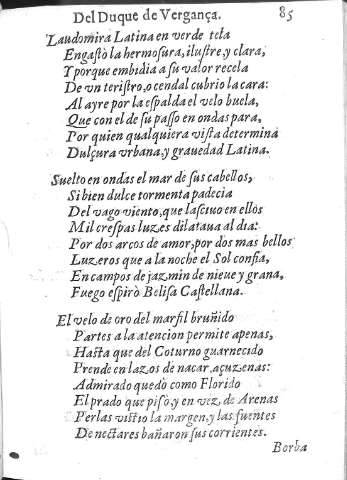 Del Duque de Vergança. 85
Laudomira Latina en verde tela
Engastò la hermosura, ilustre, y clara,
Y porque embidia a su valor recela
De vn teristro, o cendal cubrio la cara:
Al ayre por la espalda el velo buela,
Que con el de su passo en ondas para,
Por quien qualquiera vista determina
Dulçura vrbana, y grauedad Latina.
Suelto en ondas el mar de sus cabellos,
Si bien dulce tormenta padecia
Del vago viento, que lasciuo en ellos
Mil crespas luzes dilataua al dia:
Por dos arcos de amor, por dos mas bellos
Luzeros que a la noche el Sol confia,
En campos de jazmin de nieue y grana,
Fuego espirò Belisa Castellana.
El velo de oro del marfil bruñido
Partes a la atencion permite apenas,
Hasta que del Coturno guarnecido
Prende en lazos de nacar, açuzenas:
Admirado quedò como Florido
El prado que pisò, y en vez, de Arenas
Perlas vistio la margen, y las fuentes
De nectares bañaron sus corrientes.
Borba